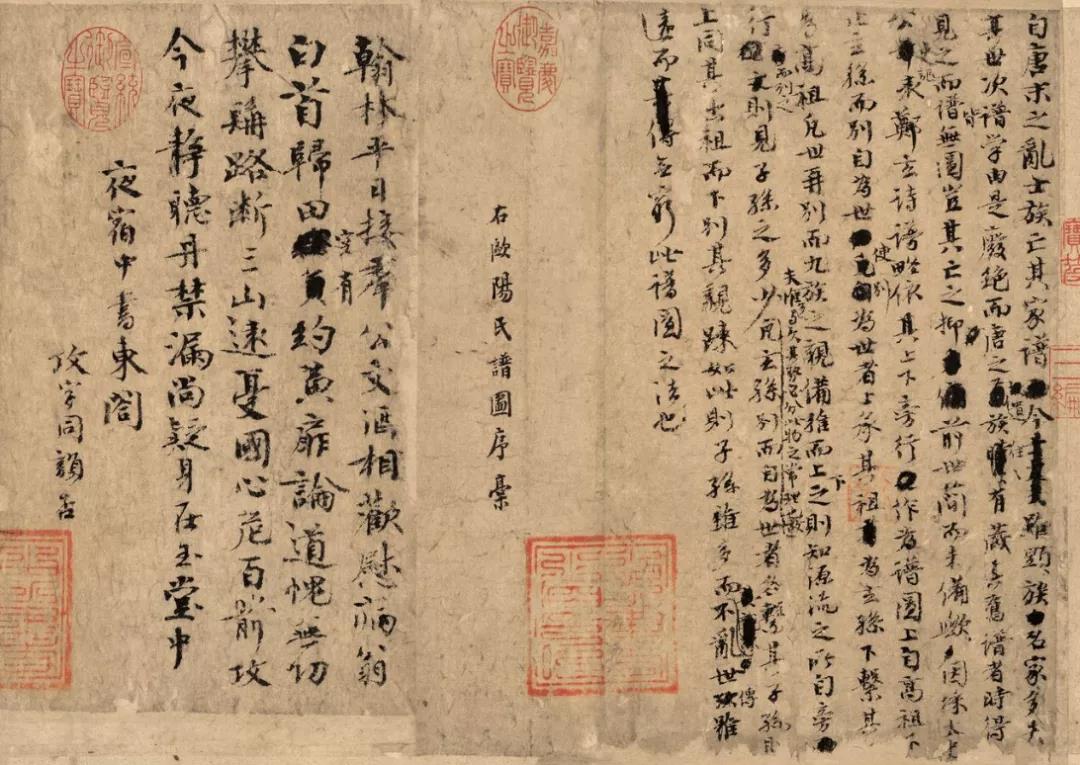 自唐末之亂士族亡其家譜今雖顯族名家多失
其世次譜学由是廢絶而唐之遺族往往有藏其舊譜者時得
見之而譜皆無圖豈其亡之抑前世簡而未備歟因採太史
公史記表鄭玄詩譜略依其上下旁行作為譜圖上自高祖下
止玄孫而別自為世使別為世者上承其祖為玄孫下繫其
為高祖凡世再別而九族之親備推而上下之則知源流之所自旁
行而列之則見子孫之多少夫惟多與久其勢必分此物之常理凡玄孫別而自為世者各繫其子孫則
上同其出祖而下別其親踈如此則子孫雖多而不亂世傳雖
遠而無窮此譜圖之法也
右歐陽氏譜圖序稾
嘉慶御覽之寶
翰林平日接羣公文酒相歡慰病翁
白首歸田空有約黃扉論道愧無功
攀髯路斷三山遠憂國心危百箭攻
今夜靜聽丹禁漏尚疑身在玉堂中
夜宿中書東閣
攻字同韻否
宣統御覽之寶